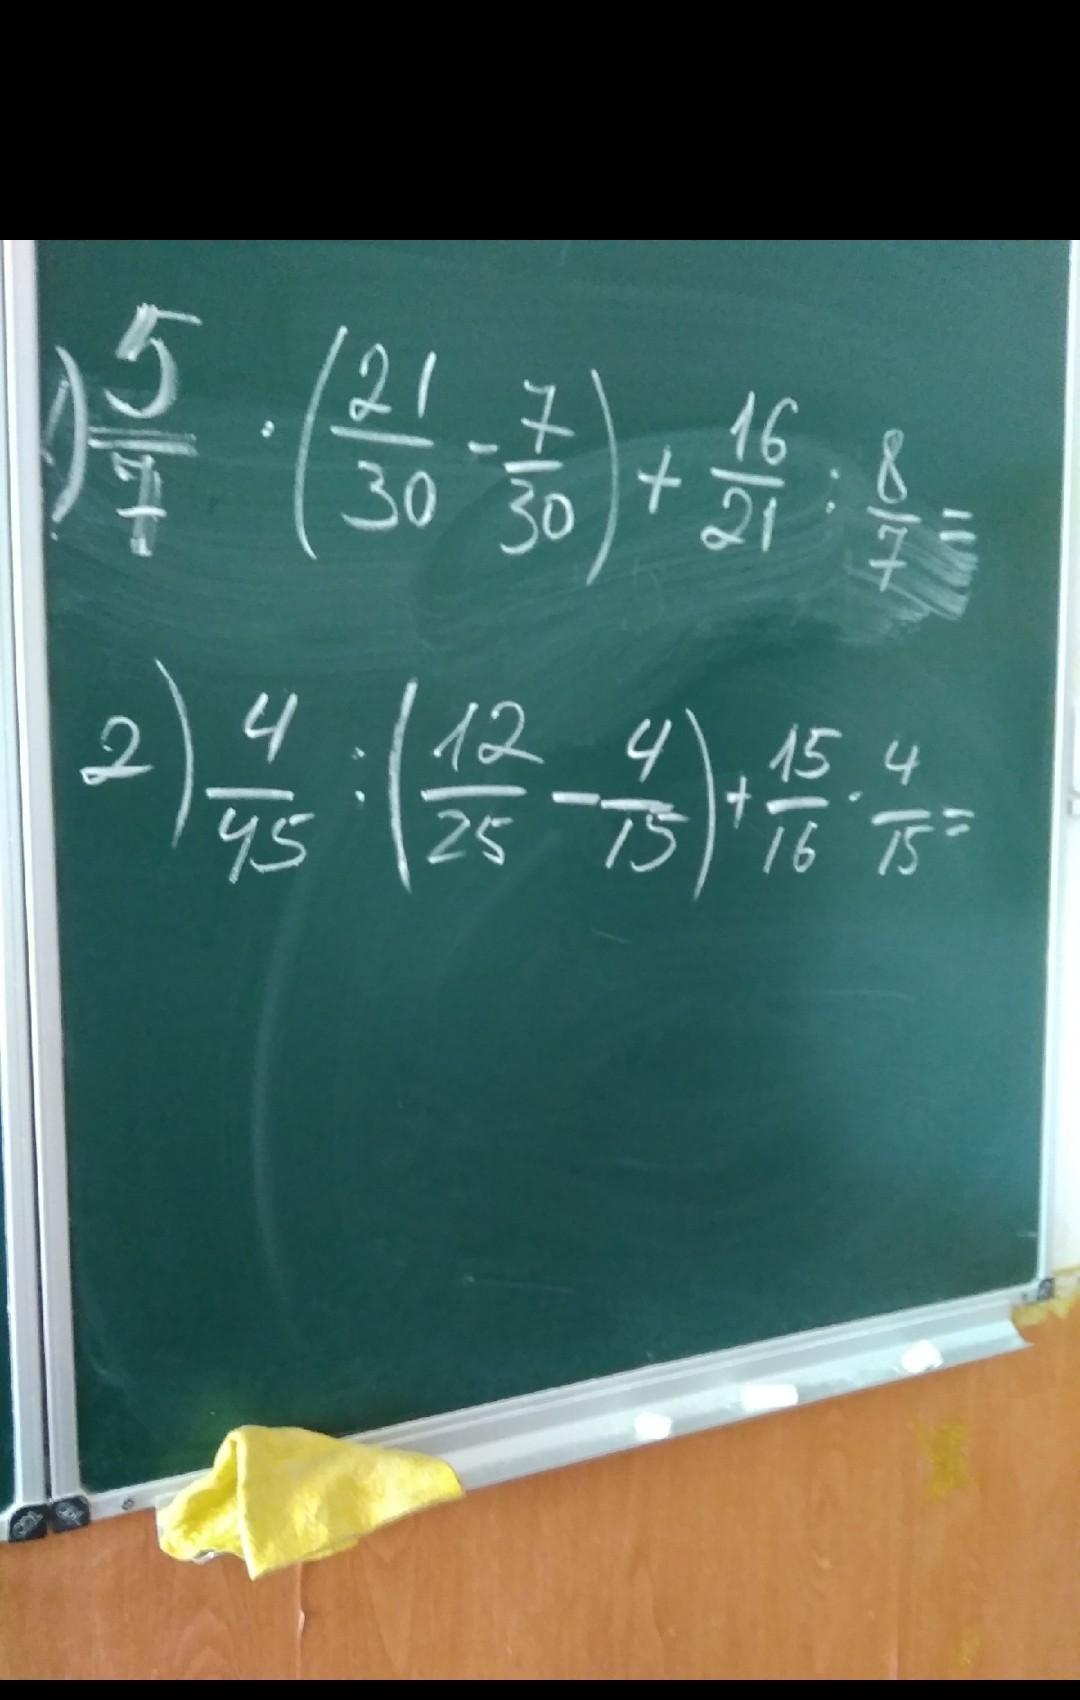 1) 5/7 · (21/30 - 7/30) + 16/21 : 8/7 =
2) 4/45 : (12/25 - 4/15) + 15/16 · 4/15 =